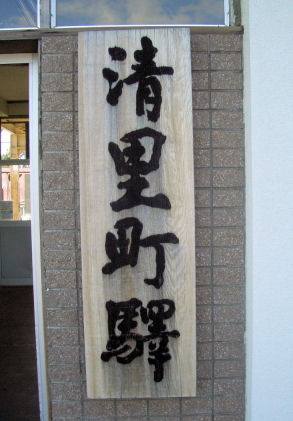 清里町驛